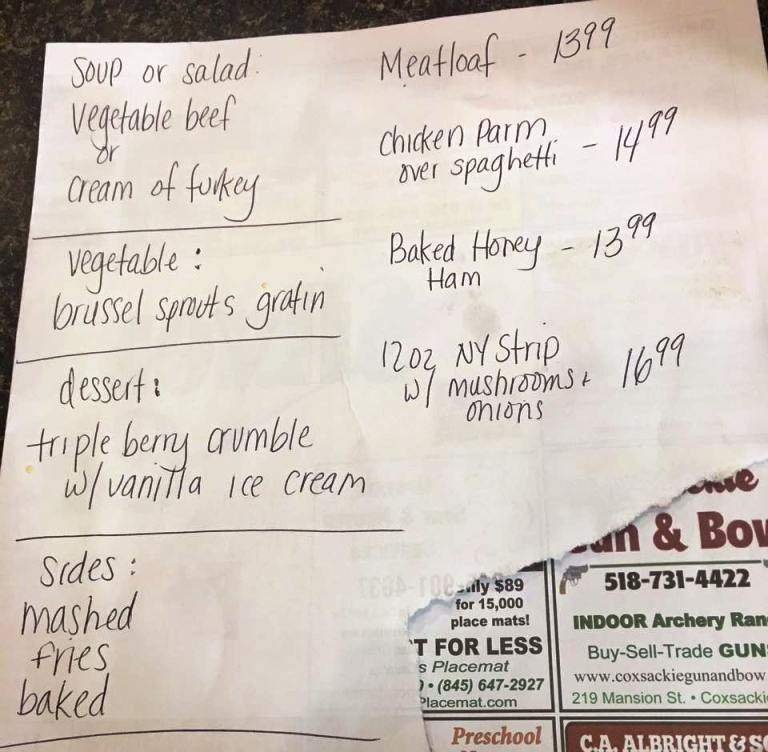 Soup or salad:
Vegetable beef
or
cream of turkey
vegetable:
brussel sprouts gratin
dessert:
triple berry crumble
w/ vanilla ice cream
Sides:
mashed
fries
baked
Meatloaf - 13 99
Chicken Parm
over spaghetti - 14 99
Baked Honey - 13 99
Ham
12oz NY Strip
w/ mushrooms + 16 99
onions
$89
for 15,000
place mats!
T FOR LESS
s Placemat
(845) 647-2927
Placemat.com
Preschool
& Bow
518-731-4422
INDOOR Archery Ran
Buy-Sell-Trade GUN
www.coxsackiegunandbow
219 Mansion St. • Coxsacki
C.A. ALBRIGHT & SO